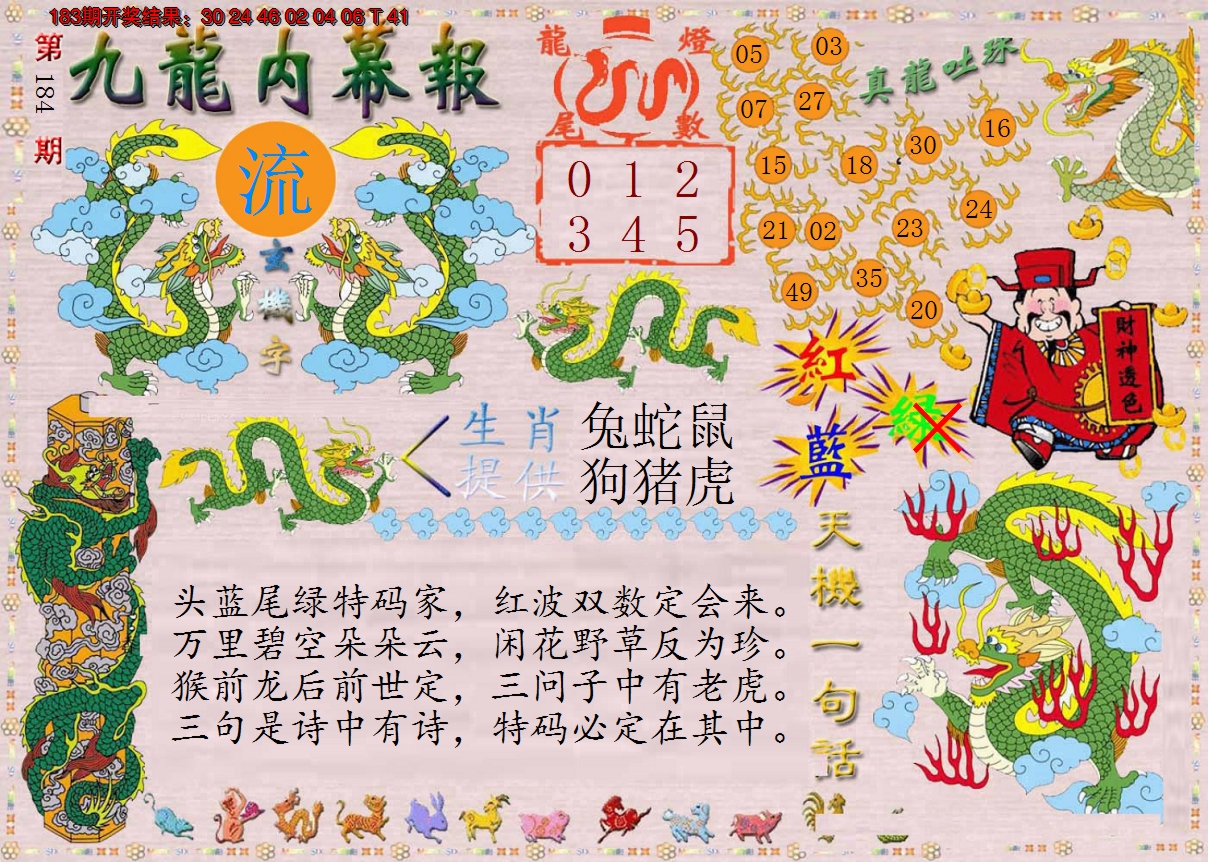 183期开奖结果：30 24 46 02 04 06 T 41
第184期
九龍内幕報
流
玄機字
龍燈
尾數
0 1 2
3 4 5
真龍吐珠
05 03
07 27
15 18 30 16
21 02 23 24
49 35 20
紅
綠
藍
財神透色
生肖
提供
兔蛇鼠
狗猪虎
天機一句話
头蓝尾绿特码家，红波双数定会来。
万里碧空朵朵云，闲花野草反为珍。
猴前龙后前世定，三问子中有老虎。
三句是诗中有诗，特码必定在其中。